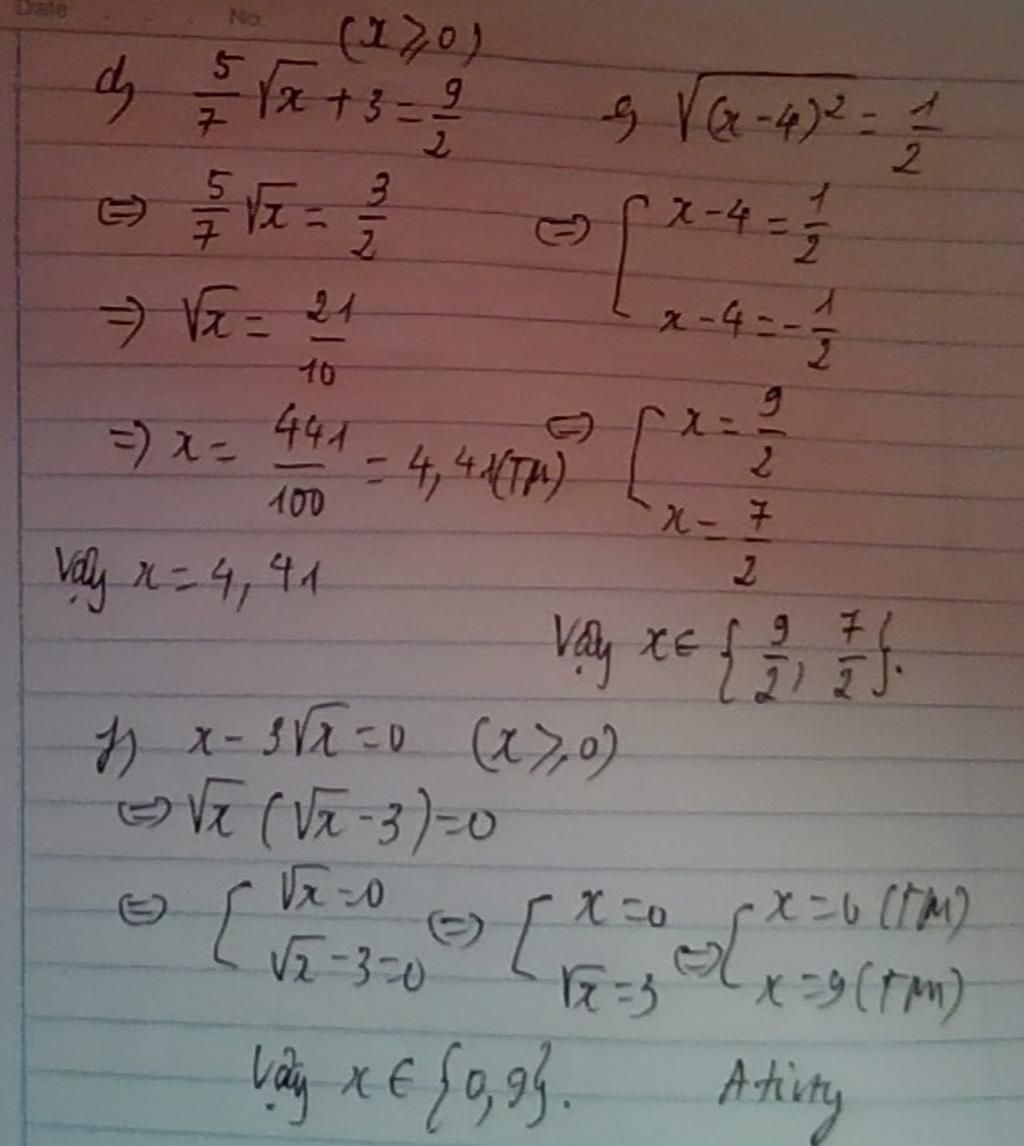 Date No
(x ≥ 0)
d) 5/7 √x + 3 = 9/2
⇔ 5/7 √x = 3/2
⇒ √x = 21/10
⇒ x = 441/100 = 4,41 (TM)
Vậy x = 4,41
e) √(x-4)² = 1/2
⇔ [ x - 4 = 1/2
x - 4 = -1/2
⇔ [ x = 9/2
x = 7/2
Vậy x ∈ { 9/2, 7/2 }.
f) x - 3√x = 0 (x ≥ 0)
⇔ √x (√x - 3) = 0
⇔ [ √x = 0 ⇔ [ x = 0 ⇔ [ x = 0 (TM)
√x - 3 = 0 √x = 3 x = 9 (TM)
Vậy x ∈ {0, 9}.